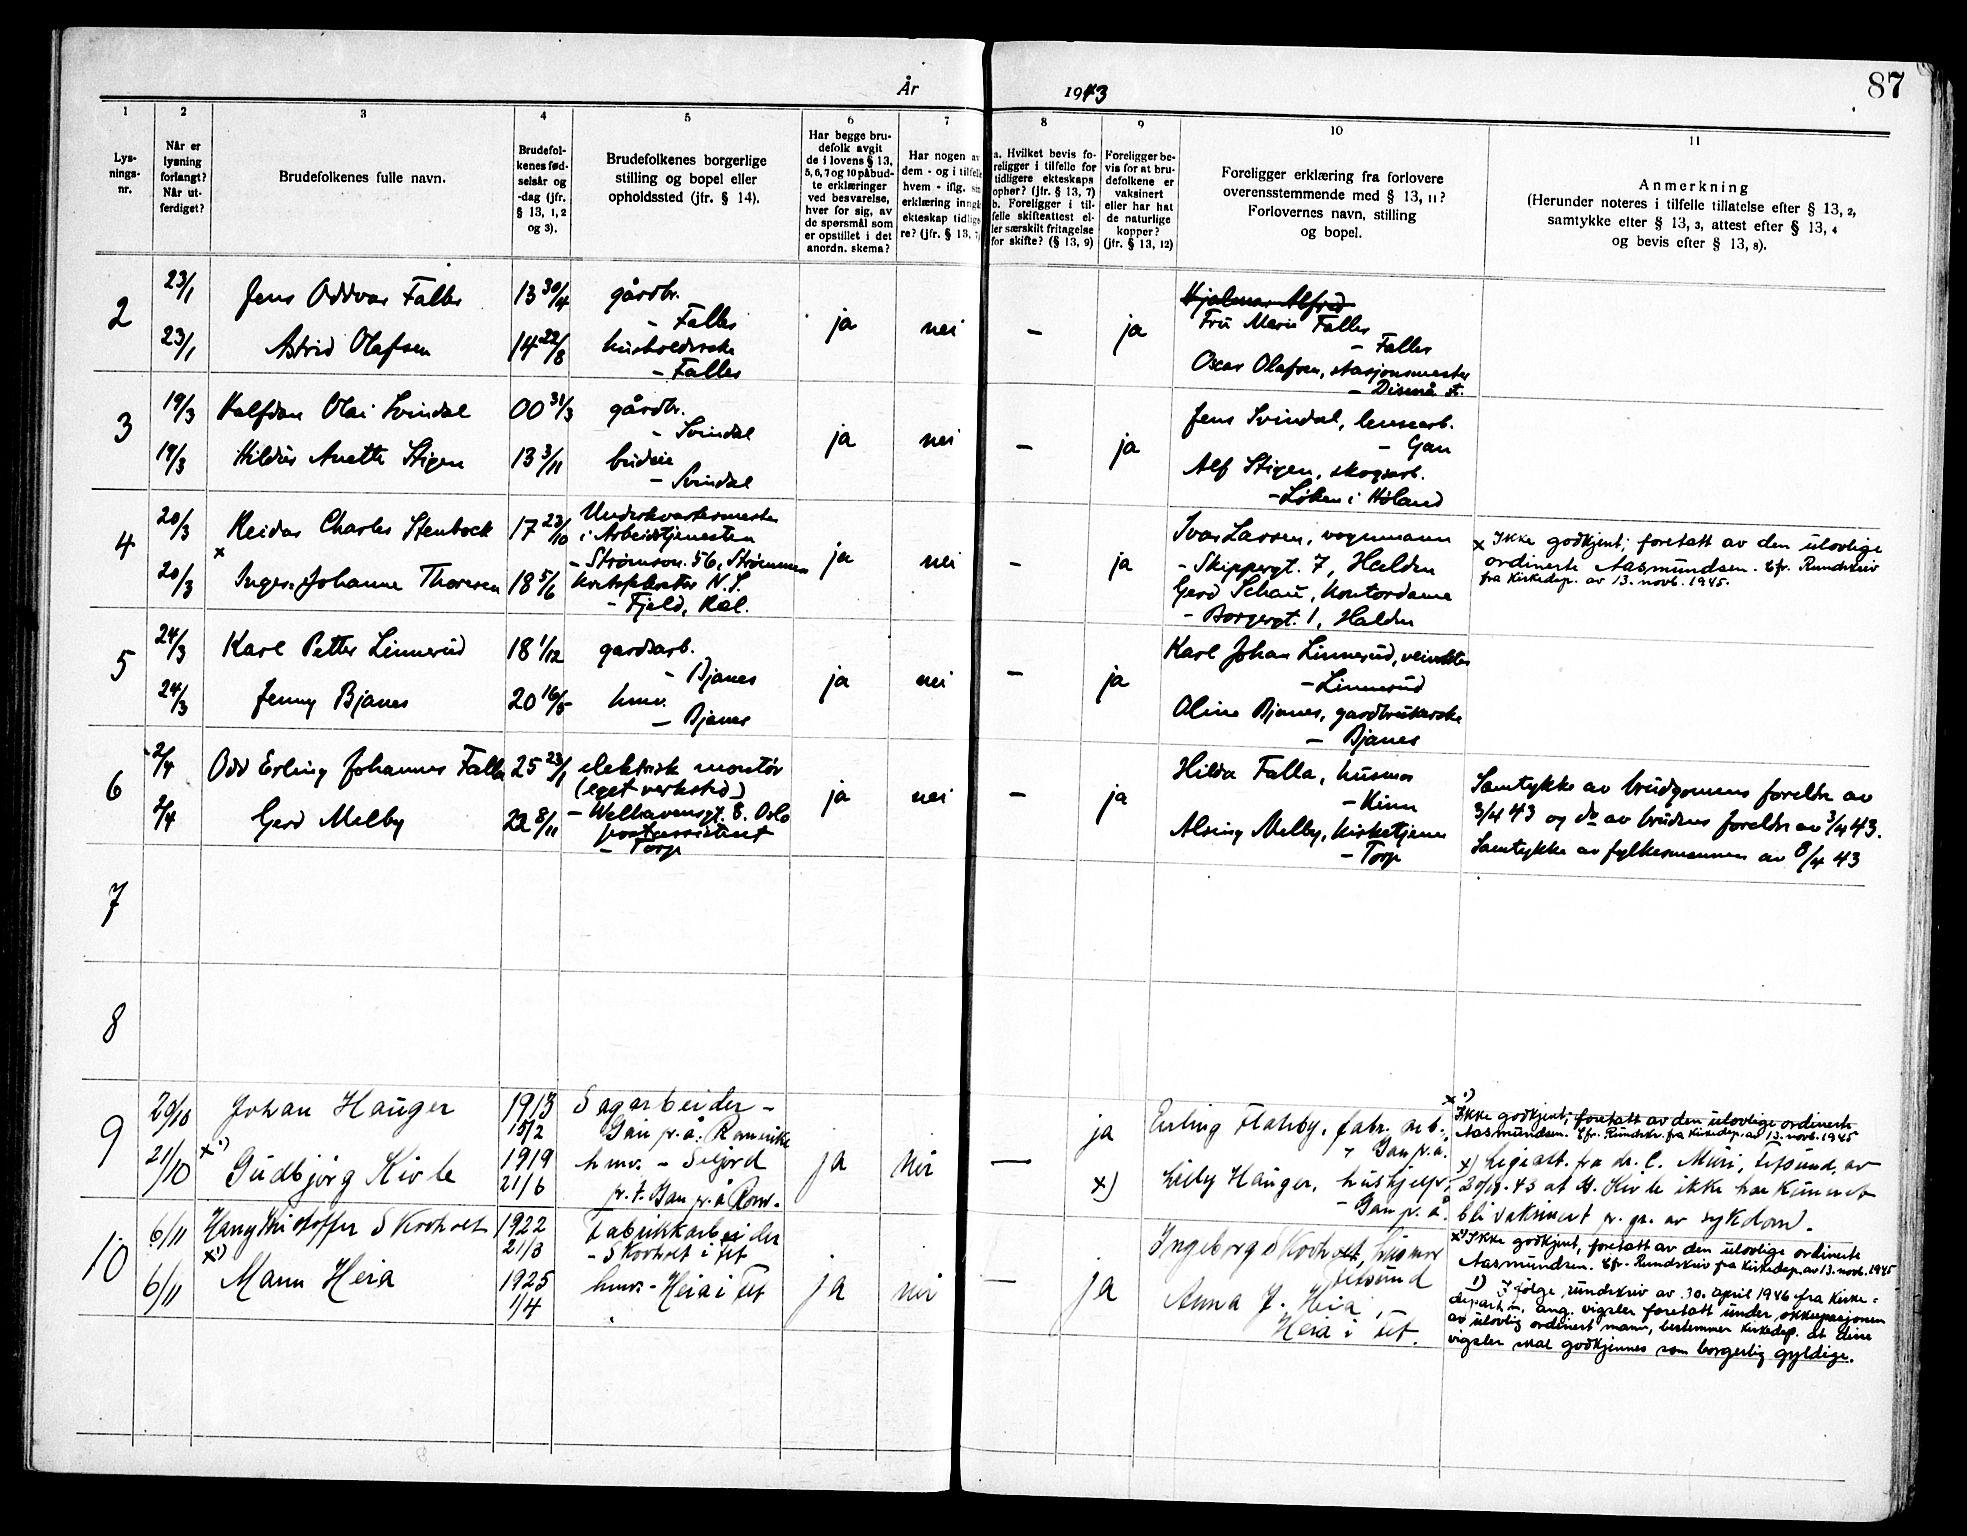 87
År
1943
1
2
3
4
5
6
7
8
9
10
11
Lys-
nings-
nr.
Når er
lysning
forlangt?
Når ut-
ferdiget?
Brudefolkenes fulle navn.
Brudefol-
kenes fød-
selsår og
-dag (jfr.
§ 13, 1, 2
og 3).
Brudefolkenes borgerlige
stilling og bopel eller
opholdssted (jfr. § 14).
Har begge bru-
defolk avgit
de i lovens § 13,
5, 6, 7 og 10 påbud-
te erklæringer
ved besvarelse,
hver for sig, av
de spørsmål som
er opstillet i det
anordn. skema?
Har nogen av
dem - og i tilfelle
hvem - iflg. sin
erklæring inngå
ekteskap tidlige
re? (jfr. § 13, 7
a. Hvilket bevis fo-
religger i tilfelle for
tidligere ekteskaps
ophør? (jfr. § 13, 7)
b. Foreligger i til-
felle skifteattest el-
ler særskilt fritagelse
for skifte? (§ 13, 9)
Foreligger be-
vis for at bru-
defolkene er
vaksinert
eller har hat
de naturlige
kopper?
(jfr. § 13, 12)
Foreligger erklæring fra forlovere
overensstemmende med § 13, 11?
Forlovernes navn, stilling
og bopel.
Anmerkning
(Herunder noteres i tilfelle tillatelse efter § 13, 2,
samtykke efter § 13, 3, attest efter § 13, 4
og bevis efter § 13, 8).
2
23/1
Jens Oddvar Falles
13 30/4
gårdbr.
- Falles
23/1
Astrid Olafsen
14 22/8
husholderske
- Falles
ja
nei
-
ja
Hjalmar Alfred
Fru Marie Falles
- Falles
Oscar Olafsen, stasjonsmester
- Disenå st.
3
19/3
Halfdan Olai Svindal
00 31/3
gårdbr.
- Svindal
19/3
Hildur Anette Stigen
13 3/11
budeie
- Svindal
ja
nei
-
ja
Jens Svindal, lensearb.
- Gan
Alf Stigen, skogsarb.
- Løken i Høland
4
20/3
Reidar Charles Stenbock
17 23/10
Underkvartermester
i Arbeidstjenesten
- Strømsvn. 56, Strømmen
20/3
x
Inger Johanne Thoresen
18 5/6
N.S.
- Fjeld, Røl.
ja
nei
-
ja
Ivar Larsen, vognmann
- Skippergt. 7, Halden
Gerd Schau, kontordame
- Borgergt. 1, Halden
x Ikke godkjent; foretatt av den ulovlige
ordinerte Aasmundsen. Cfr. Rundskriv
fra Kirkedep. av 13. novb. 1945.
5
24/3
Karl Petter Linnerud
18 1/12
gardsarb.
- Bjanes
24/3
Jenny Bjanes
20 16/5
hmv.
- Bjanes
ja
nei
-
ja
Karl Johan Linnerud, veivokter
- Linnerud
Oline Bjanes, gardbrukerske
- Bjanes
6
2/4
Odd Erling Johannes Falla
25 23/1
elektrisk montør
(eget verksted)
- Welhavensgt. 8. Oslo
2/4
Gerd Melby
22 8/11
postassistent
- Torp
ja
nei
-
ja
Hilda Falla, husmor
- Kinn
Alsing Melby, kirketjener
- Torp
Samtykke av brudgommens foreldre av
3/4 43 og do av brudens foreldre av 3/4 43.
Samtykke av fylkesmannen av 8/4 43
7
8
9
20/10
Johan Hauger
1913
15/2
Sagarbeider -
Gan p.å. Romerike
21/10
x 1)
Gudbjørg Kivle
1919
21/6
hmv. - Seljord
p.t. Gan p.å Rom.
ja
nei
-
ja
x)
Erling Flatby, fabr. arb.,
Gan p.å.
Lilly Hauger, hushjelp,
- Gan p.å.
x 1)
Ikke godkjent; foretatt av den ulovlige ordinerte
Aasmundsen. Cfr. Rundskr. fra Kirkedep. av 13. novb. 1945
x) Legeatt. fra dr. C. Muri, Fetsund, av
20/10. 43 at G. Kivle ikke har kunnet
bli vaksinert p. gr. av sykdom.
10
6/11
Harry Kristoffer Skovholt
1922
21/3
Fabrikkarbeider
- Skovholt i Fet
6/11
x 1)
Mann Heia
1925
1/4
hmv. - Heia i Fet
ja
nei
-
ja
Ingeborg Skovholt, husmor
Fetsund
Anna J. Heia,
Heia i Fet.
x 1) Ikke godkjent, foretatt av den ulovlige ordinerte
Aasmundsen. Cfr. Rundskriv fra Kirkedep. av 13. novb. 1945
1) Ifølge rundskriv av 30. april 1946 fra Kirke-
depart., ang. vigsler foretatt under okkupasjonen
av ulovlig ordinert mann, bestemmer Kirkedep. at disse
vigsler skal godkjennes som borgerlig gyldige.